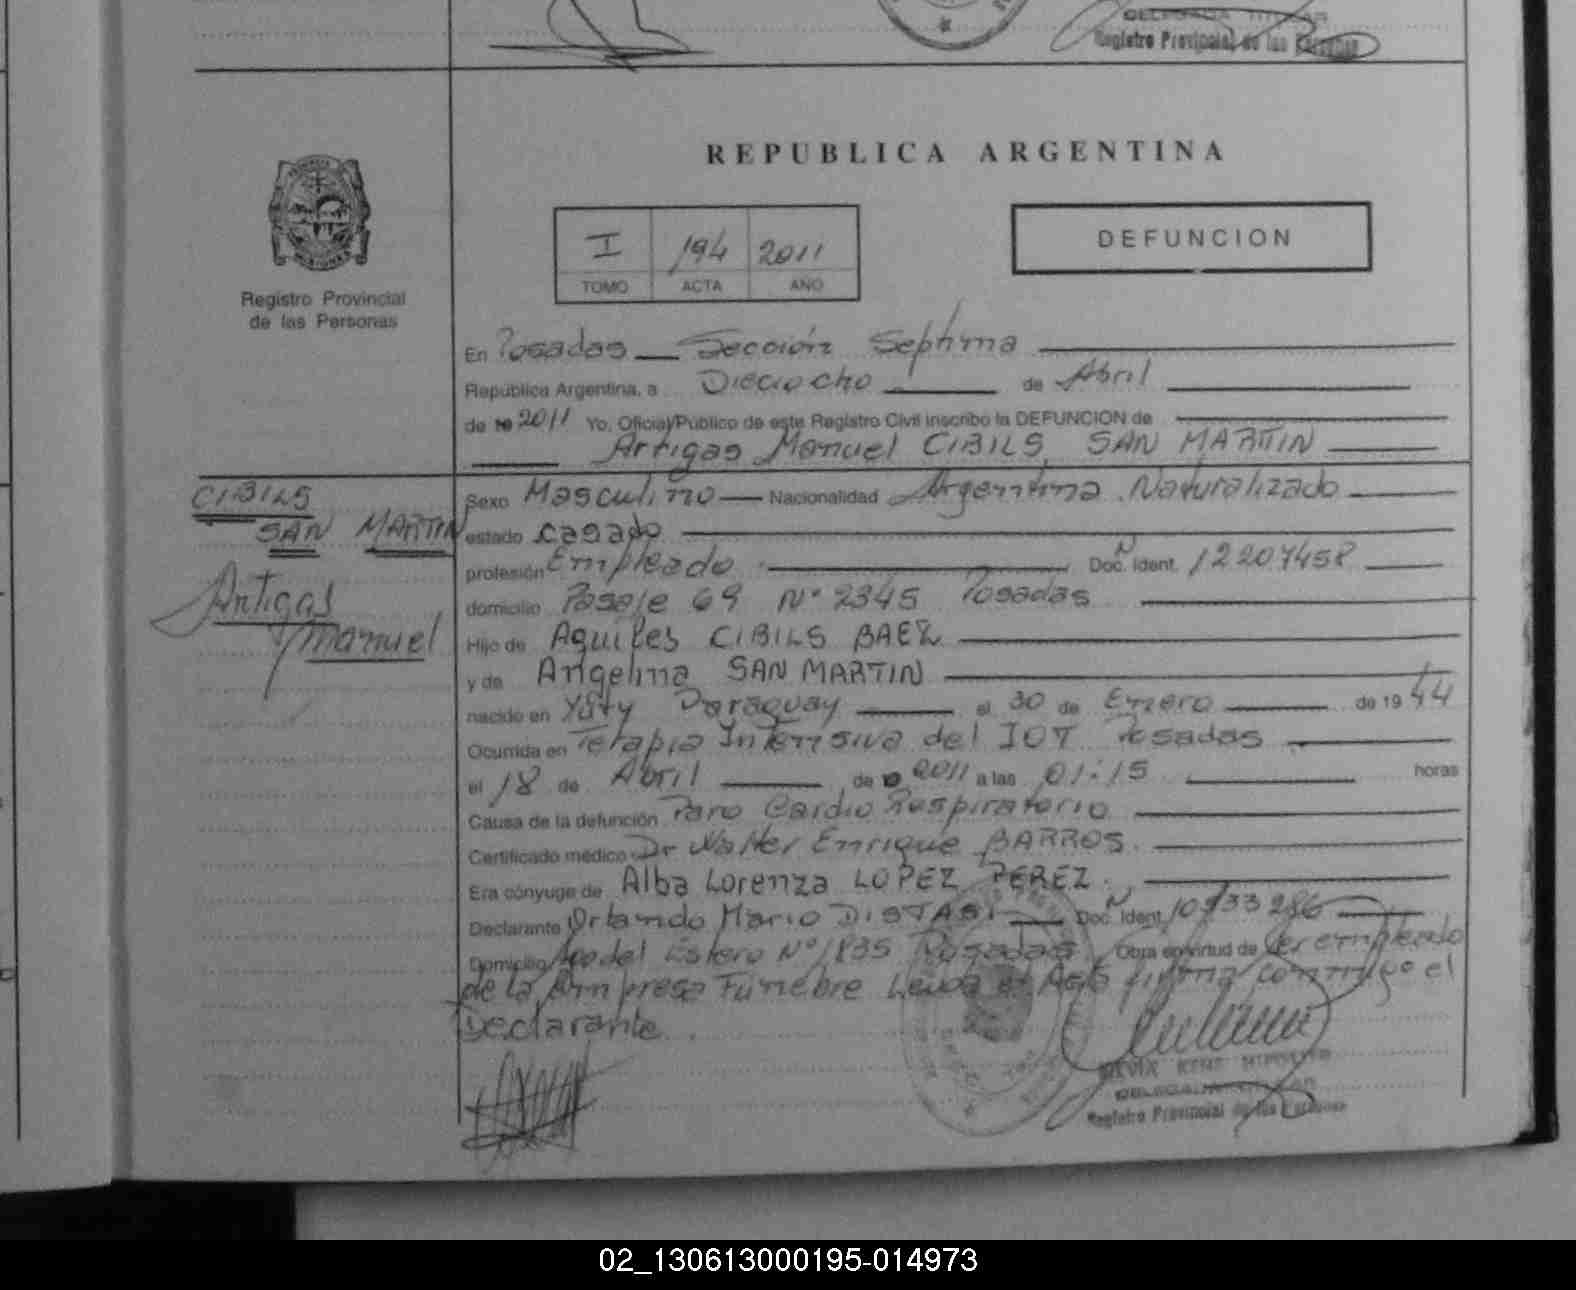 DELEGADA TITULAR
Registro Provincial de las Personas
REPUBLICA ARGENTINA
I 194 2011
TOMO ACTA AÑO
DEFUNCION
Registro Provincial
de las Personas
En Posadas Sección Septima
República Argentina, a Dieciocho de Abril
de 19 2011 Yo, Oficial Público de este Registro Civil inscribo la DEFUNCION de
Artigas Manuel CIBILS SAN MARTIN
CIBILS
SAN MARTIN
Artigas
Manuel
Sexo Masculino Nacionalidad Argentina Naturalizado
estado casado
profesión Empleado Doc. Ident. N 12207458
domicilio Pasaje 69 N° 2345 Posadas
Hijo de Aquiles CIBILS BAEZ
y de Angelina SAN MARTIN
nacido en Yuty Paraguay el 30 de Enero de 1944
Ocurrida en Terapia Intensiva del IOT Posadas
el 18 de Abril de 19 2011 a las 01:15 horas
Causa de la defunción Paro Cardio Respiratorio
Certificado médico Dr Walter Enrique BARROS
Era cónyuge de Alba Lorenza LOPEZ PEREZ
Declarante Orlando Mario DISTASI Doc. Ident. N 10933286
Domicilio del Estero N° 1835 Posadas Obra en virtud de ser empleado
de la Empresa Funebre Leída el Acta firma conmigo el
Declarante
DELEGADA TITULAR
Registro Provincial de las Personas
02_130613000195-014973